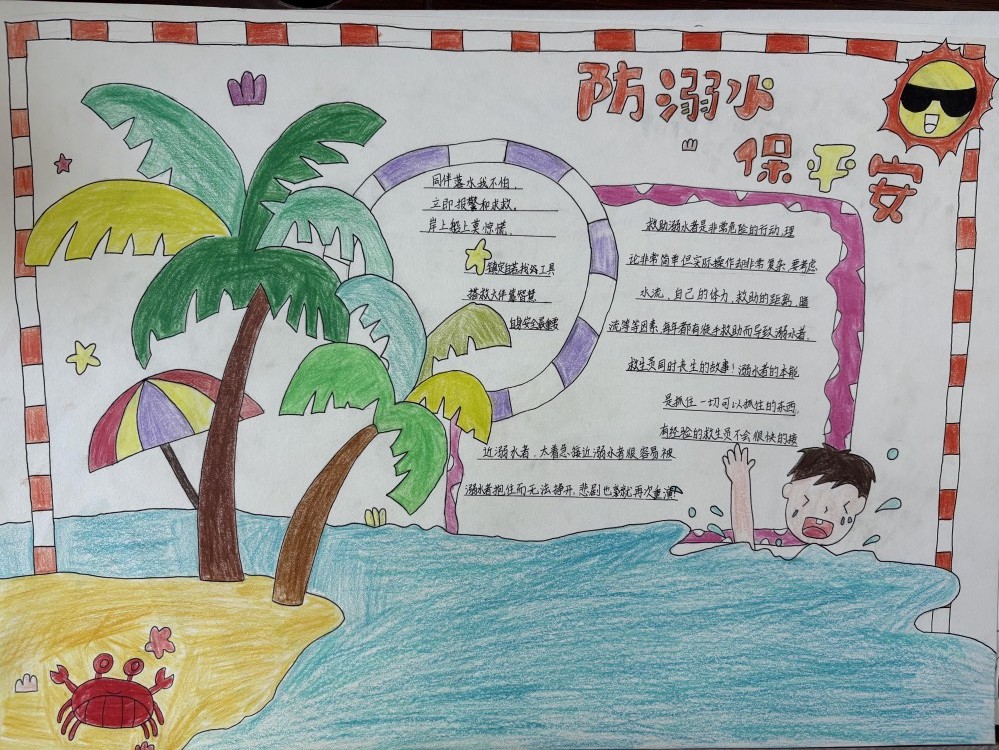 防溺水
保平安
同伴落水我不怕，
立即报警和求救，
岸上船上莫惊慌，
镇定自若找好工具
搭救大伴靠智慧
自身安全最重要
救助溺水者是非常危险的行动，理
论非常简单但实际操作却非常复杂，要考虑
水流，自己的体力，救助的距离，
流等等因素，每年都有徒手救助而导致溺水者，
救生员同时丧生的故事！溺水者的本能
是抓住一切可以抓住的东西，
有经验的救生员不会很快的接
近溺水者，太着急接近溺水者很容易被
溺水者抱住而无法挣开，悲剧也常就再次重演！